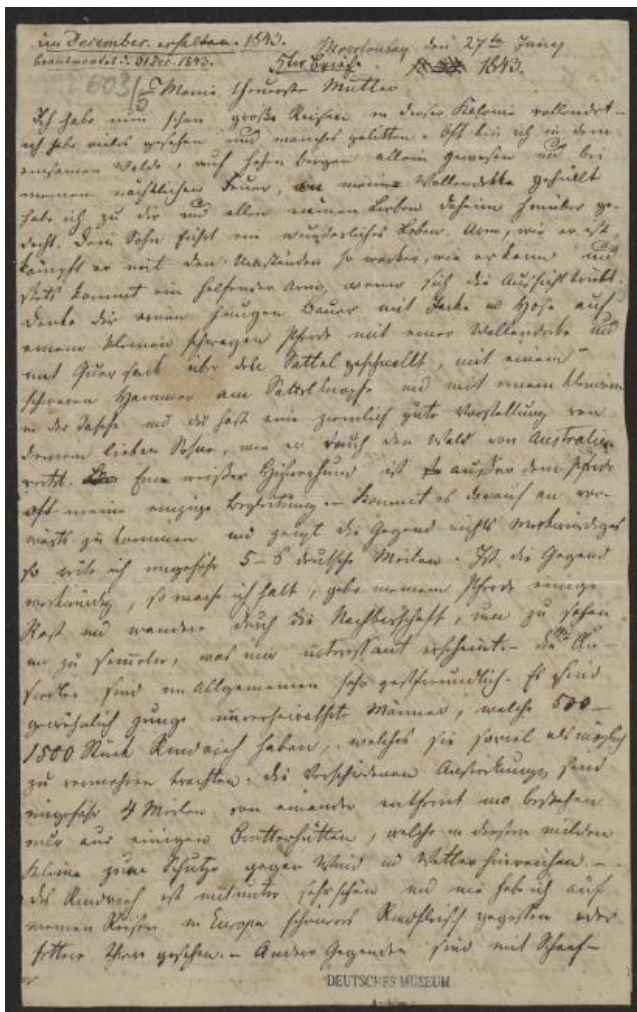 im December erhalten. 1843.
beantwortet d. 31 Dec. 1843.
Moretonbay den 27ten Juny
5ter Brief. 1843.
603/5
Meine theuerste Mutter
Ich habe nun schon große Reisen in dieser Kolonie vollendet –
ich habe vieles gesehen und manches gelitten. Oft bin ich in dem
einsamen Walde, auf hohen Bergen allein gewesen und bei
meinem nächtlichen Feuer, in meine Wollendecke gehüllt
habe ich zu dir und allen meinen Lieben daheim hinüber ge-
dacht. Dein Sohn führt ein wunderliches Leben. Arm, wie er ist,
kämpft er mit den Umständen so wacker, wie er kann und
stets kommt ein helfender Arm, wenn sich die Aussicht trübt.
Denke dir einen jungen Bauer mit Jacke und Hose auf
einem kleinen Pferde mit einer Wollendecke und
mit Quersack über den Sattel geschnallt, mit einem
schweren Hammer am Sattelknopfe und mit einem kleinen
in der Tasche und du hast eine ziemlich gute Vorstellung von
deinem lieben Sohne, wie er durch den Wald von Australien
reitet. Ein weißer Hühnerhund ist außer dem Pferde
oft meine einzige Begleitung. – Kommt es darauf an vor-
wärts zu kommen und zeigt die Gegend nichts Merkwürdiges
so reite ich ungefähr 5–6 deutsche Meilen. Ist die Gegend
merkwürdig, so mache ich halt, gebe meinem Pferde einige
Rast und wandere durch die Nachbarschaft, um zu sehen
und zu sammeln, was mir interessant erscheint. – Die An-
siedler sind im Allgemeinen sehr gastfreundlich. Es sind
gewöhnlich junge unverheirathete Männer, welche 500–
1500 Stück Rindvieh haben, welches sie soviel als möglich
zu vermehren trachten. Die verschiedenen Ansiedlungen sind
ungefähr 4 Meilen von einander entfernt und bestehen
nur aus einigen Bretterhütten, welche in diesem milden
Klima zum Schutze gegen Wind und Wetter hinreichen. –
Das Rindvieh ist mitunter sehr schön und nie habe ich auf
meinen Reisen in Europa schöneres Rindfleisch gegessen oder
fettere Thiere gesehen. – Andere Gegenden sind mit Schaaf-
DEUTSCHES MUSEUM